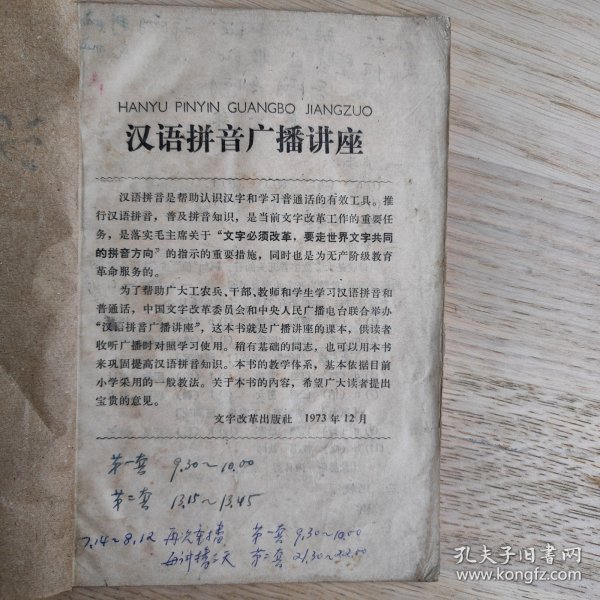 HANYU PINYIN GUANGBO JIANGZUO
汉语拼音广播讲座
汉语拼音是帮助认识汉字和学习普通话的有效工具。推
行汉语拼音，普及拼音知识，是当前文字改革工作的重要任
务，是落实毛主席关于“文字必须改革，要走世界文字共同
的拼音方向”的指示的重要措施，同时也是为无产阶级教育
革命服务的。
为了帮助广大工农兵、干部、教师和学生学习汉语拼音和
普通话，中国文字改革委员会和中央人民广播电台联合举办
“汉语拼音广播讲座”，这本书就是广播讲座的课本，供读者
收听广播时对照学习使用。稍有基础的同志，也可以用本书
来巩固提高汉语拼音知识。本书的教学体系，基本依据目前
小学采用的一般教法。关于本书的内容，希望广大读者提出
宝贵的意见。
文字改革出版社 1973年12月
第一套 9.30～10.00
第二套 13.15～13.45
7.14～8.12 再次重播 第一套 9.30～10.00
每讲播二天 第二套 21.30～22.00
孔夫子旧书网
www.kongfz.com